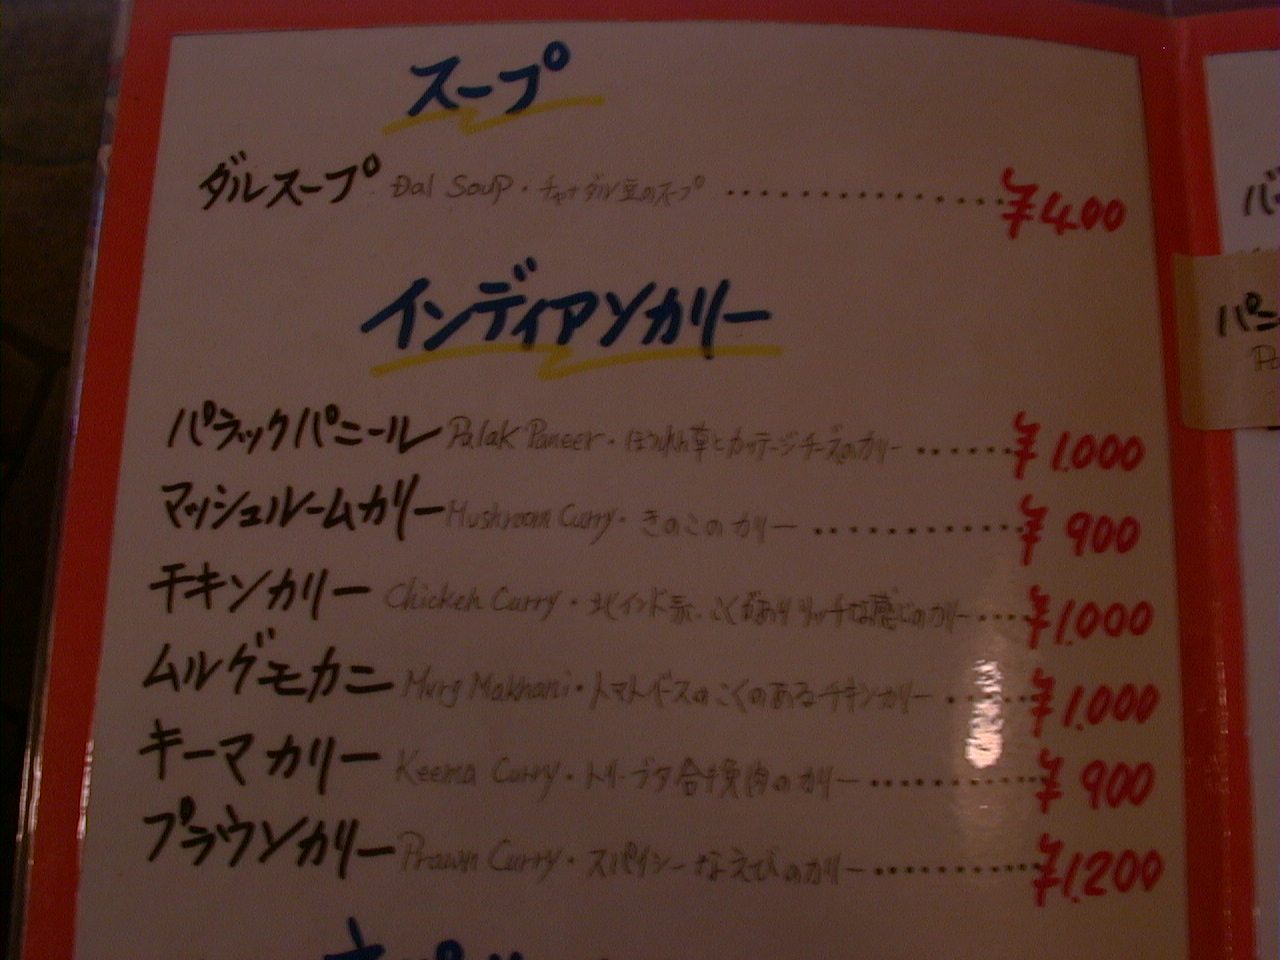 スープ
ダルスープ Dal Soup・チャナダル豆のスープ ............. ¥400
インディアンカリー
パラックパニール Palak Paneer・ほうれん草とカッテージチーズのカリー ...... ¥1.000
マッシュルームカリー Mushroom Curry・きのこのカリー ............ ¥900
チキンカリー Chicken Curry・北インド系、こくがありリッチな感じのカリー .... ¥1.000
ムルグモカニ Murg Makhani・トマトベースのこくのあるチキンカリー ...... ¥1.000
キーマカリー Keema Curry・トリ・ブタ合挽肉のカリー .......... ¥900
プラウンカリー Prawn Curry・スパイシーなえびのカリー .......... ¥1.200